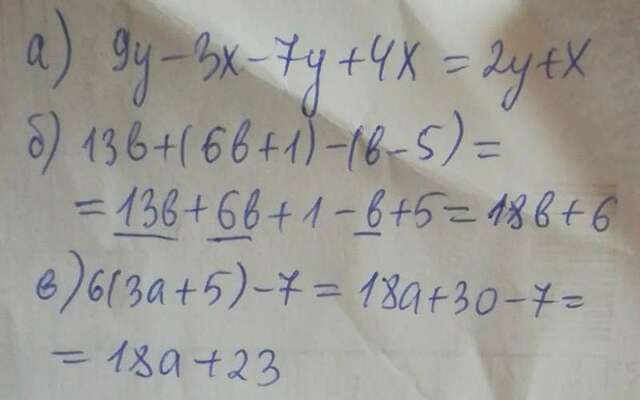 а) 9y-3x-7y+4x=2y+x
б) 13b+(6b+1)-(b-5)=
=13b+6b+1-b+5=18b+6
в) 6(3a+5)-7=18a+30-7=
=18a+23